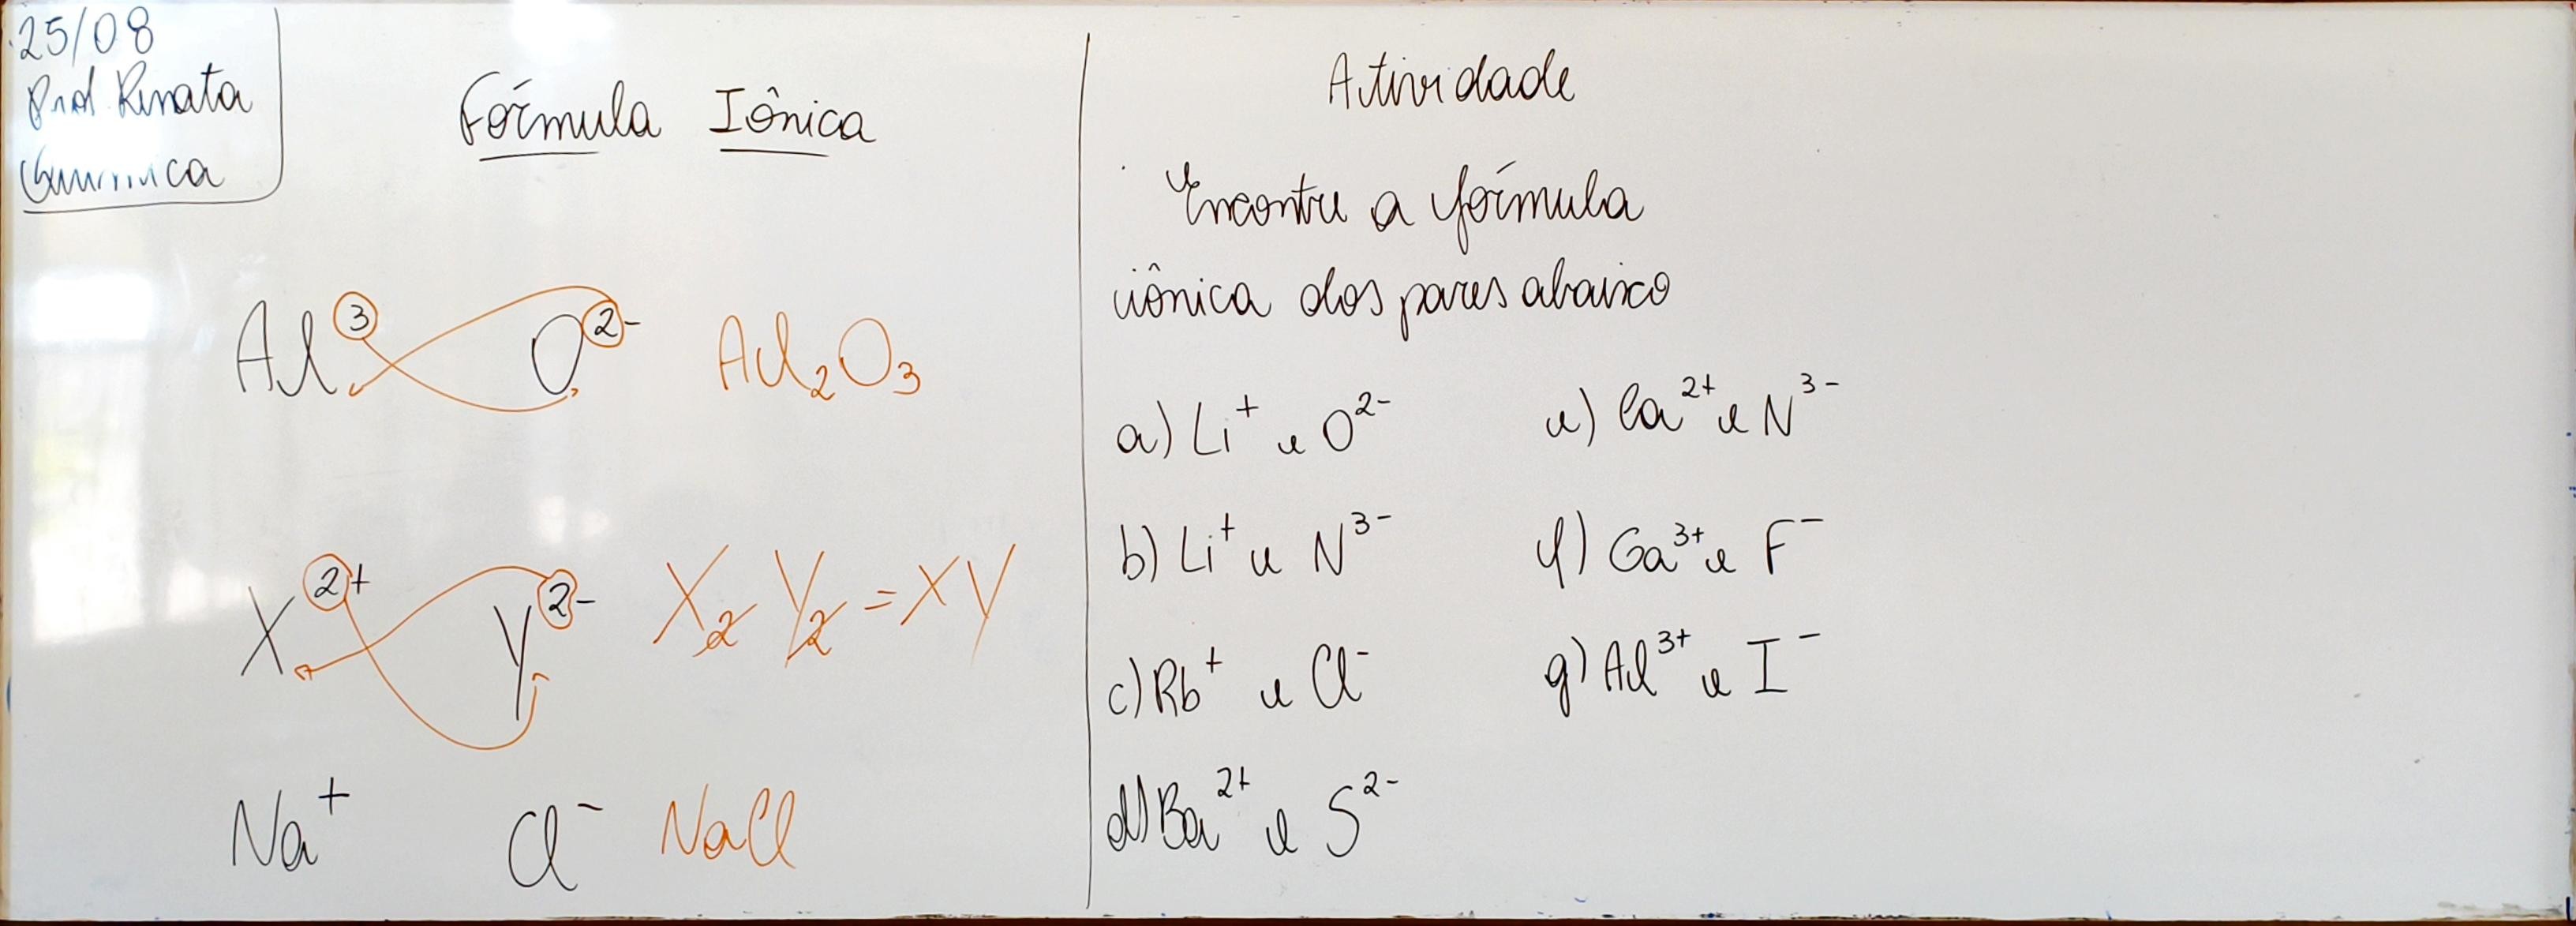 25/08
Prof Renata
Química
Fórmula Iônica
Al³ O²⁻ Al₂O₃
X²⁺ Y²⁻ X₂Y₂ = XY
Na⁺ Cl⁻ NaCl
Atividade
Encontre a fórmula
iônica dos pares abaixo
a) Li⁺ e O²⁻
b) Li⁺ e N³⁻
c) Rb⁺ e Cl⁻
d) Ba²⁺ e S²⁻
e) Ca²⁺ e N³⁻
f) Ga³⁺ e F⁻
g) Al³⁺ e I⁻